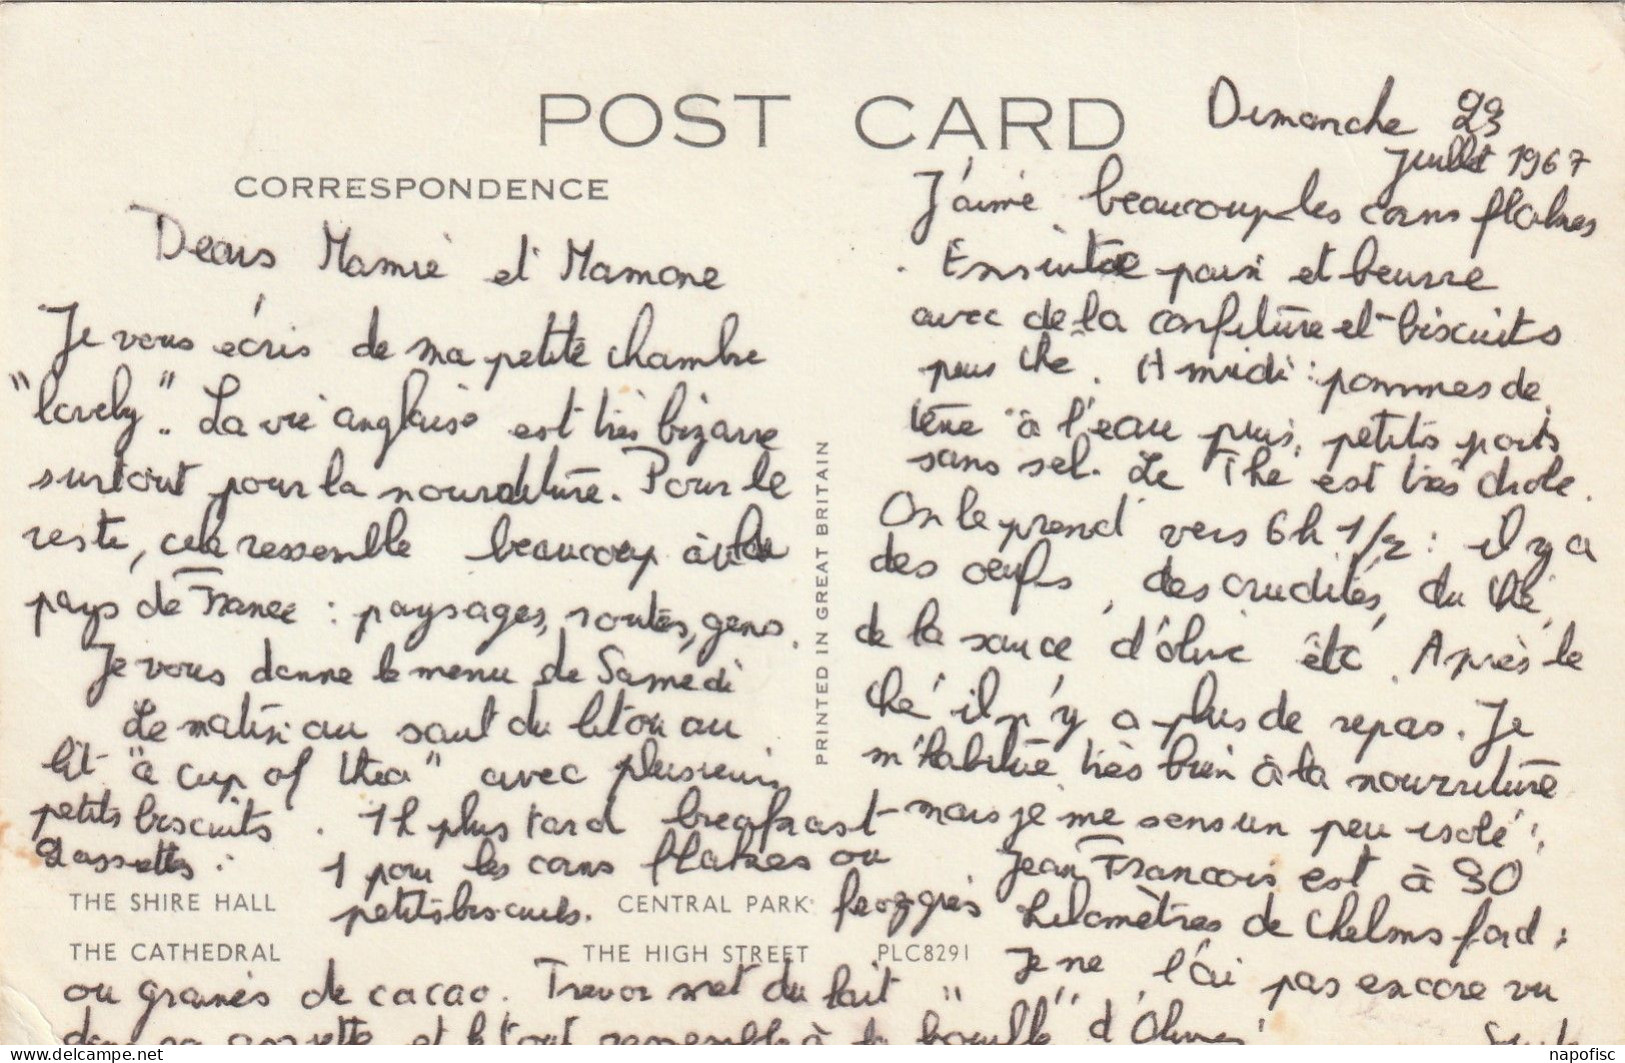 POST CARD
CORRESPONDENCE
Dimanche 23
Juillet 1967
Dears Mamie et Mamone
Je vous écris de ma petite chambre
"lovely". La vie anglaise est très bizarre
surtout pour la nourriture. Pour le
reste, cela ressemble beaucoup
pays de France : paysages, routes, gens.
Je vous donne le menu de Samedi
Le matin au saut du lit ou au
lit "a cup of thea" avec plusieurs
petits biscuits. 1h plus tard breafrast
2 assettes :
1 pour les corns flakes ou
petits biscuits.
ou grains de cacao. Trevor met du lait
dans sa assette et le tout ressemble à la "bouille" d'Olivier
J'aime beaucoup les corns flakes
. Ensuite pain et beurre
avec de la confiture et biscuits
puis thé. A midi : pommes de
terre à l'eau puis, petits pois
sans sel. Le Thé est très drole.
On le prend vers 6h 1/2 : il y a
des oeufs, des crudités, du thé,
de la sauce d'olive etc. Après le
thé il n'y a plus de repas. Je
m'habitue très bien à la nourriture
mais je me sens un peu isolé,
Jean François est à 30
kilomètres de Chelmsford ;
Je ne l'ai pas encore vu
THE SHIRE HALL
CENTRAL PARK
THE CATHEDRAL
THE HIGH STREET
PLC8291
PRINTED IN GREAT BRITAIN
napofisc